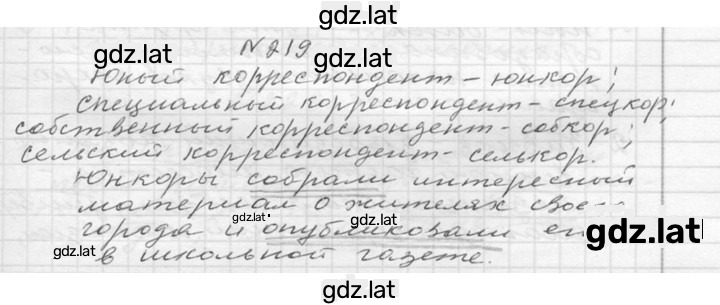 gdz.lat
N 219
gdz.lat
gdz.lat
Юный корреспондент - юнкор;
специальный корреспондент - спецкор;
собственный корреспондент - собкор;
сельский корреспондент - селькор.
Юнкоры собрали интересный
материал о жителях свое-
gdz.lat
gdz.lat
города и опубликовали
gdz.lat
gdz.lat
в школьной газете.
gdz.lat